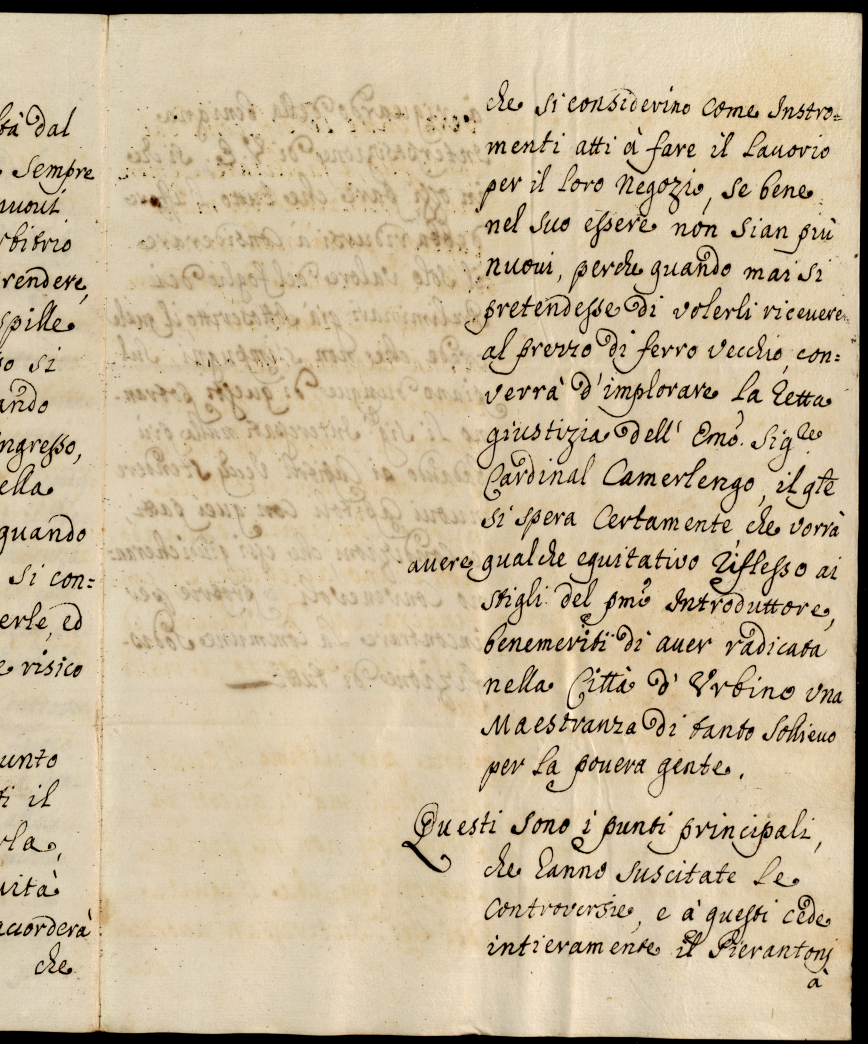 ltà dal
Sempre
nuovi
rbitrio
rendere,
spille
so si
ando
ngresso,
ella
quando
si con=
erle, ed
e risico
unto
ti il
rla,
uità
accorderà
che
che si considerino come Instro=
menti atti à fare il Lavorio
per il loro Negozio, se bene
nel suo essere non sian più
nuovi, perche quando mai si
pretendesse di volerli ricevere
al prezzo di ferro vecchio, con=
verrà d'implorare la retta
giustizia dell' Emo. Sigre
Cardinal Camerlengo, il qle
si spera Certamente che vorrà
avere qualche equitativo riflesso ai
stigli del pmo Introduttore,
benemeriti di aver radicata
nella Città d'Urbino una
Maestranza di tanto Sollievo
per la povera gente.
Questi sono i punti principali,
che hanno suscitate le
Controversie, e à questi cede
intieramente il Pierantonj
à